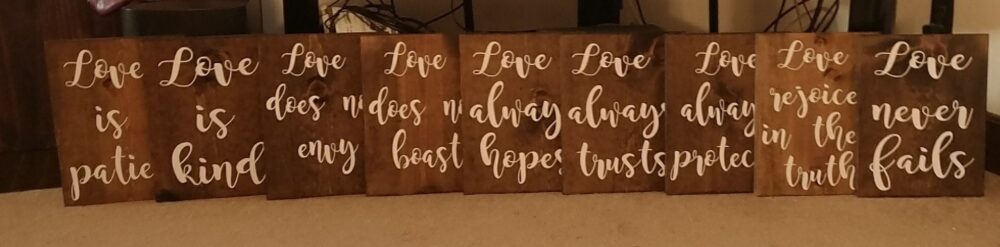 Love
is
patie
Love
is
kind
Love
does n
envy
Love
does n
boast
Love
alway
hopes
Love
always
trusts
Love
alway
protec
Love
rejoice
in the
truth
Love
never
fails